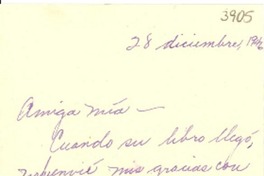 3905
28 diciembre,
Amiga mía —
Cuando su libro llegó,
envié mis gracias con